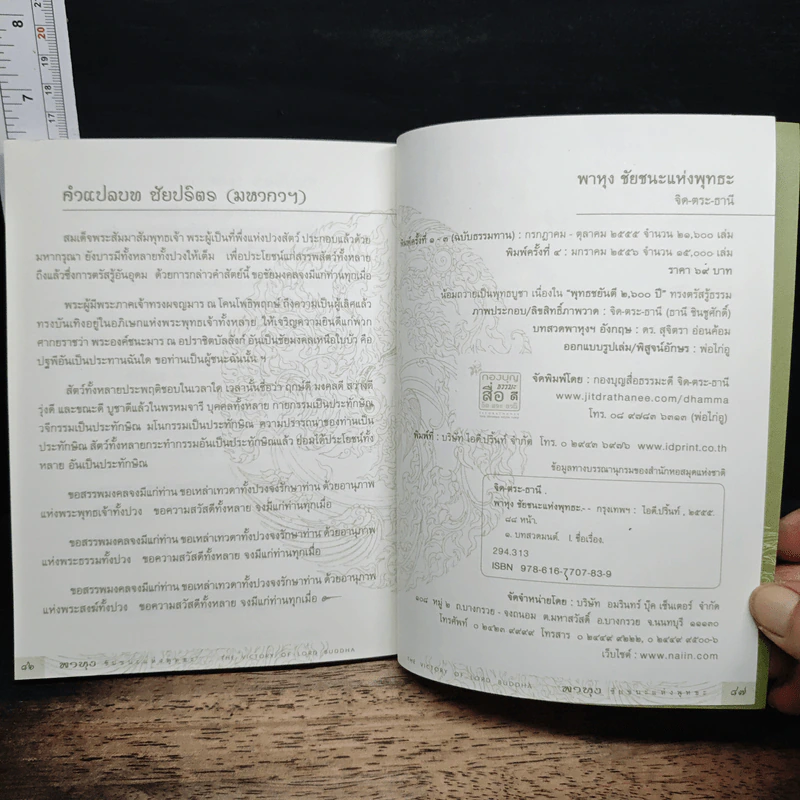 8
20
19
7
18
17
คำแปลบท ชัยปริตร (มหากาฯ)
สมเด็จพระสัมมาสัมพุทธเจ้า พระผู้เป็นที่พึ่งแห่งปวงสัตว์ ประกอบแล้วด้วย
มหากรุณา ยังบารมีทั้งหลายทั้งปวงให้เต็ม เพื่อประโยชน์แก่สรรพสัตว์ทั้งหลาย
ถึงแล้วซึ่งการตรัสรู้อันอุดม ด้วยการกล่าวคำสัตย์นี้ ขอชัยมงคลจงมีแก่ท่านทุกเมื่อ
พระผู้มีพระภาคเจ้าทรงผจญมาร ณ โคนโพธิพฤกษ์ ถึงความเป็นผู้เลิศแล้ว
ทรงบันเทิงอยู่ในอภิเษกแห่งพระพุทธเจ้าทั้งหลาย ให้เจริญความยินดีแก่พวก
ศากยราชว่า พระองค์ชนะมาร ณ อปราชิตบัลลังก์ อันเป็นชัยมงคลเหนือใบบัว คือ
ปฐพีอันเป็นประทานฉันใด ขอท่านเป็นผู้ชนะฉันนั้น ฯ
สัตว์ทั้งหลายประพฤติชอบในเวลาใด เวลานั้นชื่อว่า ฤกษ์ดี มงคลดี สว่างดี
รุ่งดี และขณะดี บูชาดีแล้วในพรหมจารี บุคคลทั้งหลาย กายกรรมเป็นประทักษิณ
วจีกรรมเป็นประทักษิณ มโนกรรมเป็นประทักษิณ ความปรารถนาของท่านเป็น
ประทักษิณ สัตว์ทั้งหลายกระทำกรรมอันเป็นประทักษิณแล้ว ย่อมได้ประโยชน์ทั้ง
หลาย อันเป็นประทักษิณ
ขอสรรพมงคลจงมีแก่ท่าน ขอเหล่าเทวดาทั้งปวงจงรักษาท่าน ด้วยอานุภาพ
แห่งพระพุทธเจ้าทั้งปวง ขอความสวัสดีทั้งหลาย จงมีแก่ท่านทุกเมื่อ
ขอสรรพมงคลจงมีแก่ท่าน ขอเหล่าเทวดาทั้งปวงจงรักษาท่าน ด้วยอานุภาพ
แห่งพระธรรมทั้งปวง ขอความสวัสดีทั้งหลาย จงมีแก่ท่านทุกเมื่อ
ขอสรรพมงคลจงมีแก่ท่าน ขอเหล่าเทวดาทั้งปวงจงรักษาท่าน ด้วยอานุภาพ
แห่งพระสงฆ์ทั้งปวง ขอความสวัสดีทั้งหลาย จงมีแก่ท่านทุกเมื่อ
๘๖ พาหุง ชัยชนะแห่งพุทธะ THE VICTORY OF LORD BUDDHA
พาหุง ชัยชนะแห่งพุทธะ
จิต-ตระ-ธานี
พิมพ์ครั้งที่ ๑ - ๓ (ฉบับธรรมทาน) : กรกฎาคม - ตุลาคม ๒๕๕๕ จำนวน ๒๑,๖๐๐ เล่ม
พิมพ์ครั้งที่ ๔ : มกราคม ๒๕๕๖ จำนวน ๑๕,๐๐๐ เล่ม
ราคา ๖๙ บาท
น้อมถวายเป็นพุทธบูชา เนื่องใน "พุทธชยันตี ๒,๖๐๐ ปี" ทรงตรัสรู้ธรรม
ภาพประกอบ/ลิขสิทธิ์ภาพวาด : จิต-ตระ-ธานี (ธานี ชินชูศักดิ์)
บทสวดพาหุงฯ อังกฤษ : ดร. สุจิตรา อ่อนค้อม
ออกแบบรูปเล่ม/พิสูจน์อักษร : พ่อไก่อู
กองบุญ
ธรรมะ
สื่อ ดี
จิต ตระ ธานี
จัดพิมพ์โดย : กองบุญสื่อธรรมะดี จิต-ตระ-ธานี
www.jitdrathanee.com/dhamma
โทร. ๐๘ ๙๗๘๓ ๖๓๑๓ (พ่อไก่อู)
พิมพ์ที่ : บริษัท ไอดี.ปริ้นท์ จำกัด โทร. ๐ ๒๙๔๓ ๖๙๗๖ www.idprint.co.th
ข้อมูลทางบรรณานุกรมของสำนักหอสมุดแห่งชาติ
จิต-ตระ-ธานี.
พาหุง ชัยชนะแห่งพุทธะ.-- กรุงเทพฯ : ไอดี.ปริ้นท์, ๒๕๕๕.
๘๘ หน้า.
๑. บทสวดมนต์. I. ชื่อเรื่อง.
294.313
ISBN 978-616-7707-83-9
จัดจำหน่ายโดย : บริษัท อมรินทร์ บุ๊ค เซ็นเตอร์ จำกัด
๑๐๘ หมู่ ๒ ถ.บางกรวย - จงถนอม ต.มหาสวัสดิ์ อ.บางกรวย จ.นนทบุรี ๑๑๑๓๐
โทรศัพท์ ๐ ๒๔๒๓ ๙๙๙๙ โทรสาร ๐ ๒๔๔๙ ๙๒๒๒, ๐ ๒๔๔๙ ๙๕๐๐-๖
เว็บไซต์ : www.naiin.com
THE VICTORY OF LORD BUDDHA พาหุง ชัยชนะแห่งพุทธะ ๘๗